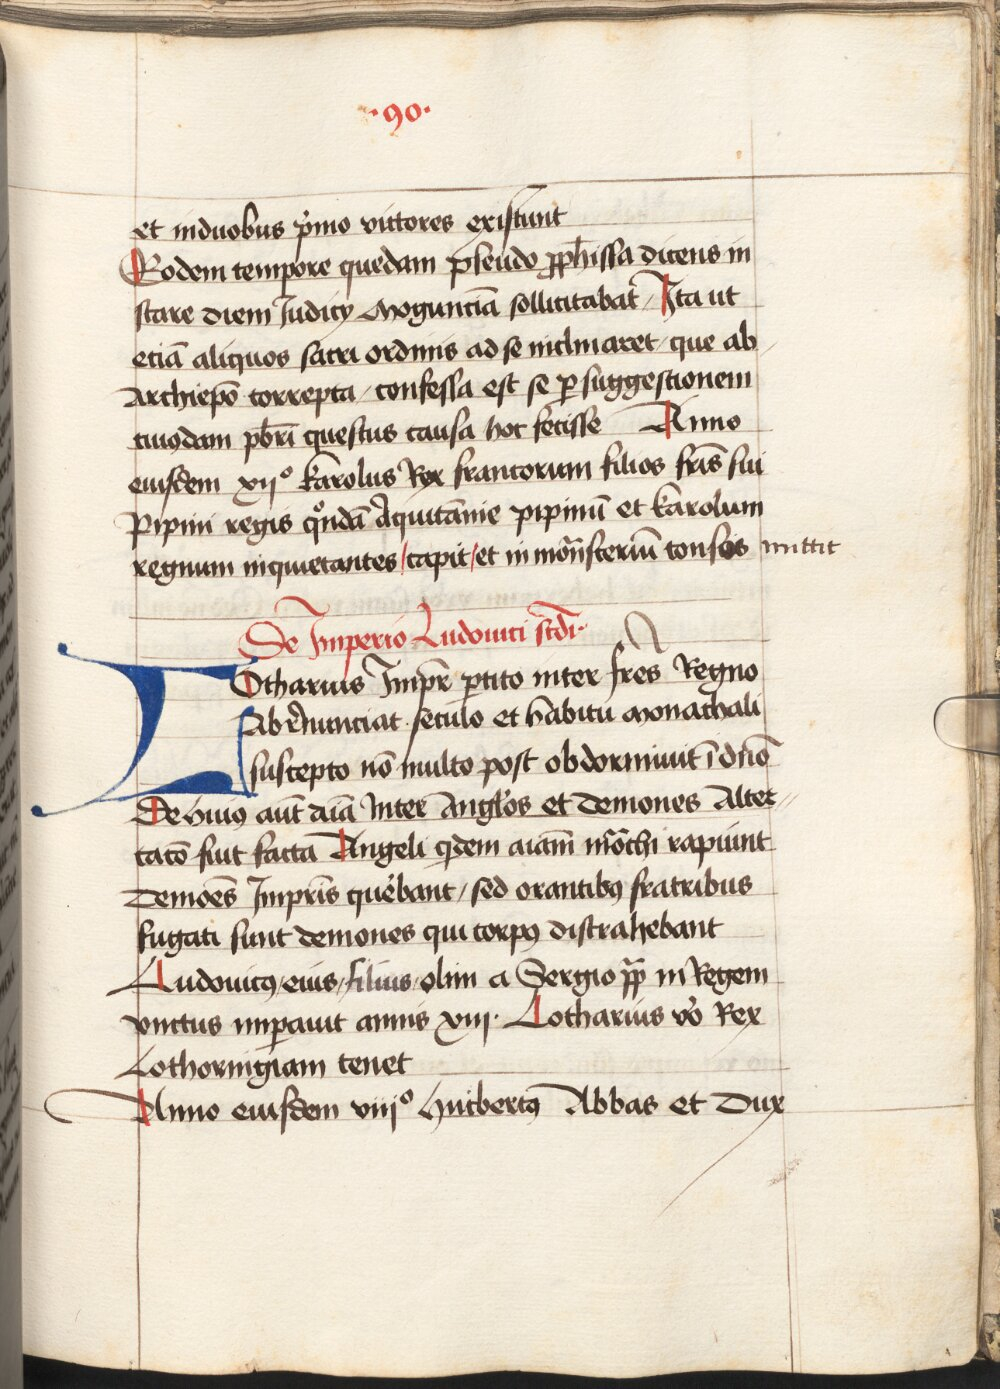 ·90·
et in duobus p̄mo victores existunt
Eodem tempore quedam pseudo ꝓph̄issa dicens in
stare diem Judicij Moguntiā sollicitabat᷑ / Ita ut
etiā aliquos sacri ordinis ad se inclinaret / que ab /
Archiep̄o correpta / confessa est se ꝑ suggestionem
cuiusdam pb̄ri questus causa hoc fecisse Anno
eiusdem xijº karolus Rex francorum filios fr̄is sui
Pipini regis qͦndā Aquitanie pipinū et karolum
regnum inquietantes / capit / et in monͣsteriū tonsos mittit
De Imperio Ludouici scd̄i·
Lotharius Imp̄r ꝑtito inter fr̄es Regno
Abrenunciat seculo et habitu monachali
suscepto nō multo post obdormiuit ī dn̄o
De huiꝯ aut̄ aīa Inter Anglos et demones Alter //
catō fuit facta Angeli qͥdem aīam mōchi rapiunt
Demoēs Imp̄ris querebant / sed orantibꝯ fratribus
fugati sunt demones qui corpꝯ distrahebant
Ludouicꝯ / eius / filius / olim a Sergio p̄p in Regem
vnctus imꝑauit annis xiij· Lotharius v̊o Rex
Lothoringiam tenet
Anno eiusdem viijº Hucbertꝯ Abbas et Dux